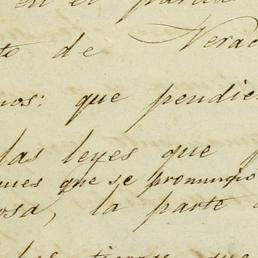 en el partid
to de Verac
nos: que pendie
las leyes que
ques que se pronunció
osa, la parte